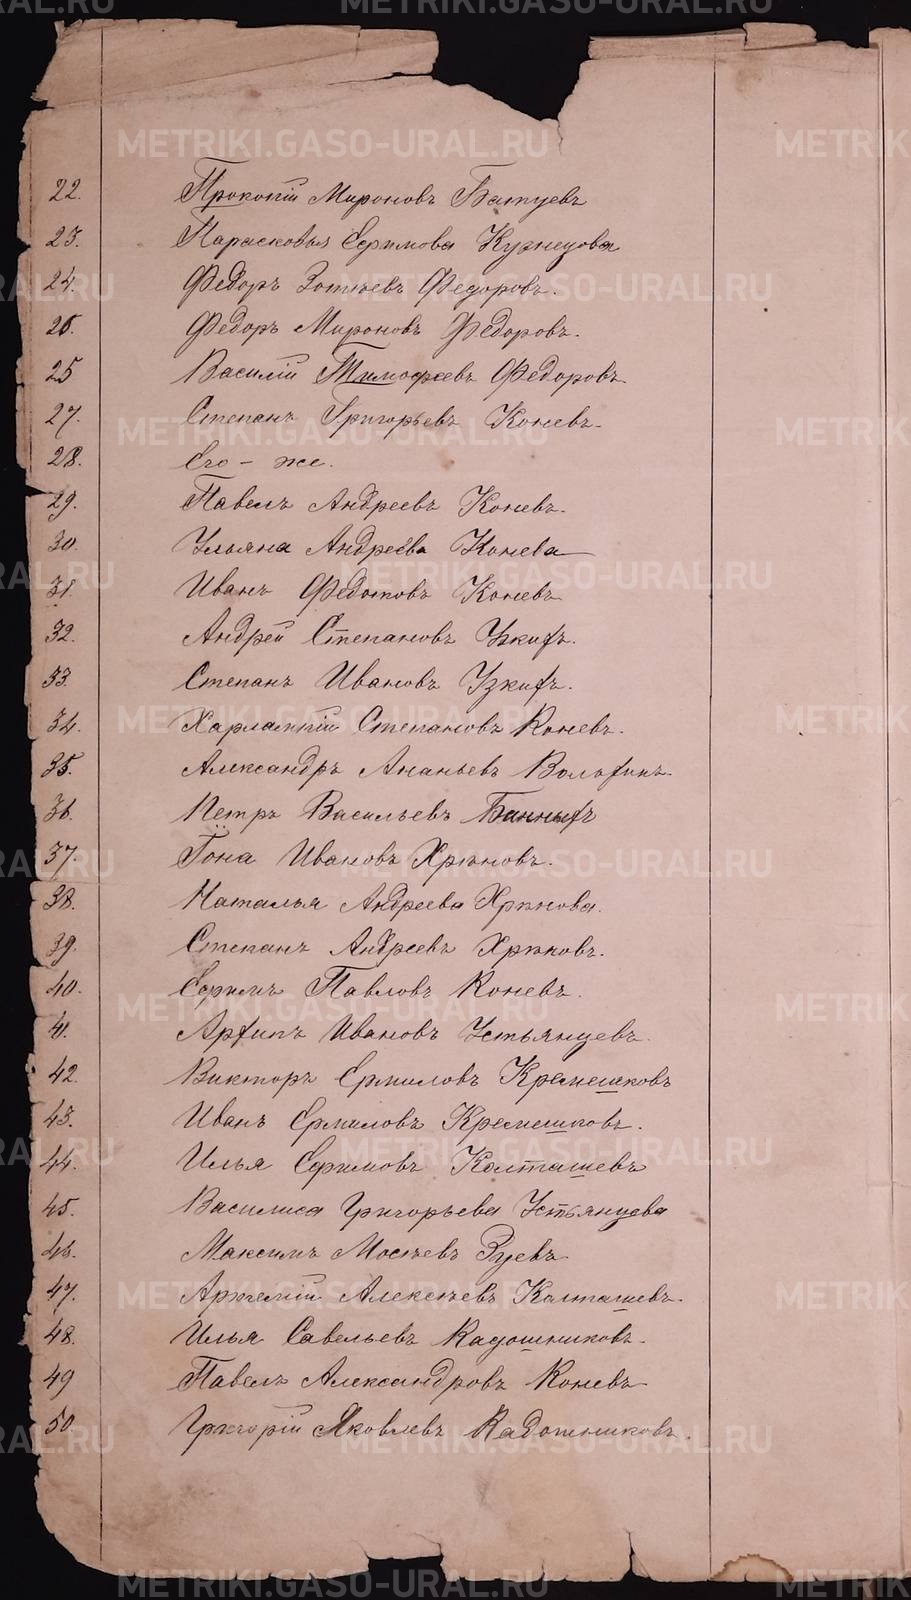 22. Прокопій Мироновъ Батуевъ
23. Парасковья Ефимова Кузнецова
24. Федоръ Зотѣевъ Федоровъ.
25. Федоръ Мироновъ Федоровъ.
25 Василій Тимофеевъ Федоровъ
27. Степанъ Григорьевъ Коневъ.
28. Его - же.
29. Павелъ Андреевъ Коневъ.
30. Ульяна Андреева Конева
31. Иванъ Федотовъ Коневъ
32. Андрей Степановъ Узкихъ.
33. Степанъ Ивановъ Узкихъ.
34. Харлампій Степановъ Коневъ.
35. Александръ Ананьевъ Волохинъ.
36. Петръ Васильевъ Банныхъ
37. Іона Ивановъ Хрѣновъ.
38. Наталья Андреева Хрѣнова.
39. Степанъ Андреевъ Хрѣновъ.
40. Ефимъ Павловъ Коневъ.
41. Архипъ Ивановъ Устьянцевъ.
42. Викторъ Ермиловъ Кремешковъ
43. Иванъ Ермиловъ Кремешковъ.
44. Илья Ефимовъ Колташевъ
45. Василиса Григорьева Устьянцева
46. Максимъ Мосѣевъ Зуевъ
47. Артемій Алексѣевъ Колташевъ.
48. Илья Савельевъ Кадошниковъ.
49 Павелъ Александровъ Коневъ
50. Григорій Яковлевъ Кадошниковъ.
METRIKI.GASO-URAL.RU